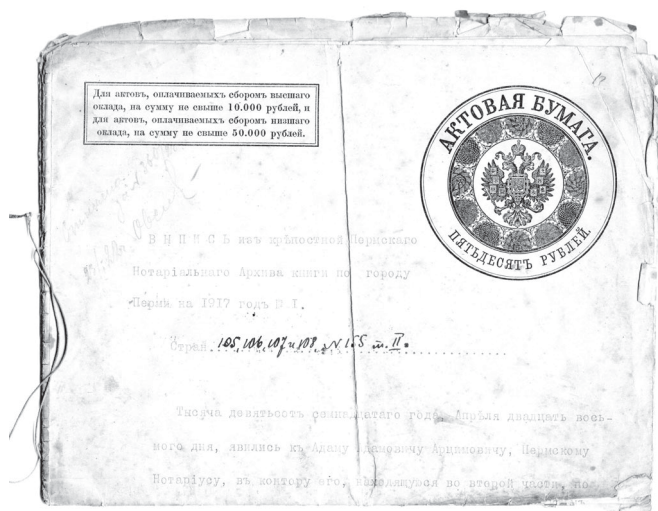 Для актовъ, оплачиваемыхъ сборомъ высшаго
оклада, на сумму не свыше 10.000 рублей, и
для актовъ, оплачиваемыхъ сборомъ низшаго
оклада, на сумму не свыше 50.000 рублей.
АКТОВАЯ БУМАГА.
ПЯТЬДЕСЯТЪ РУБЛЕЙ.
ВЫПИСЬ изъ крѣпостной Пермскаго
Нотаріальнаго Архива книги по городу
Перми на 1917 годъ
Стран. 105, 106, 107 и 108, № 155 т. II.
Тысяча девятьсотъ семнадцатаго года, Апрѣля двадцать вось-
мого дня, явились къ Адаму Адамовичу Арцимовичу, Пермскому
Нотаріусу, въ контору его, находящуюся во второй части, по